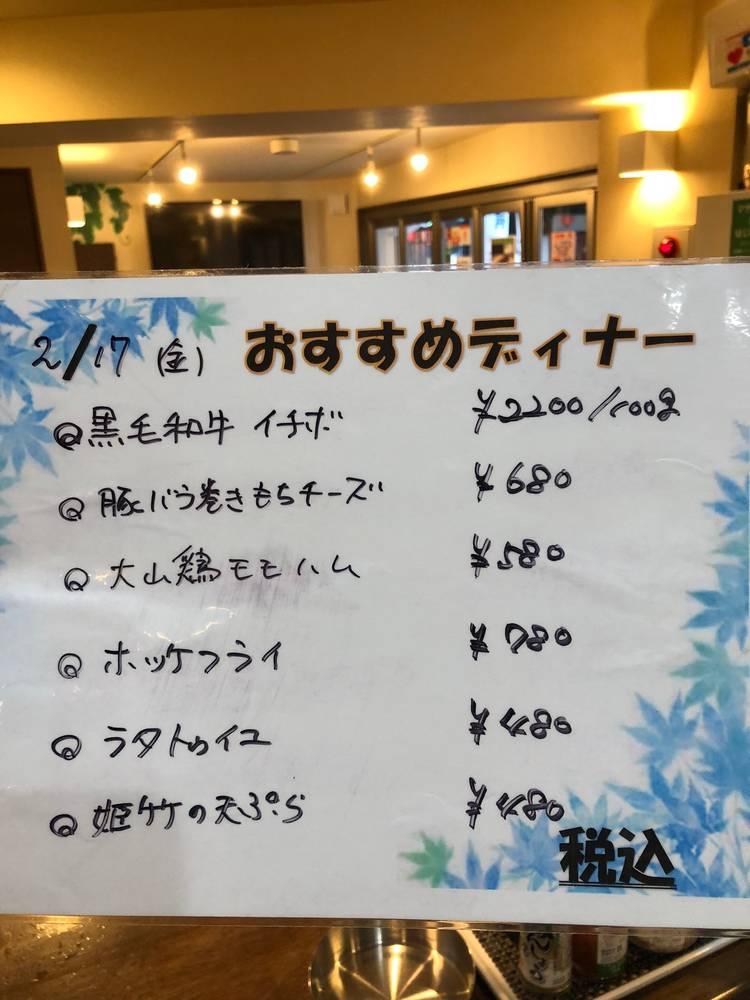 2/17 (金) おすすめディナー
黒毛和牛 イチボ ¥2200/100g
豚バラ巻きもちチーズ ¥680
大山鶏モモハム ¥580
ホッケフライ ¥780
ラタトゥイユ ¥480
姫竹の天ぷら ¥480
税込